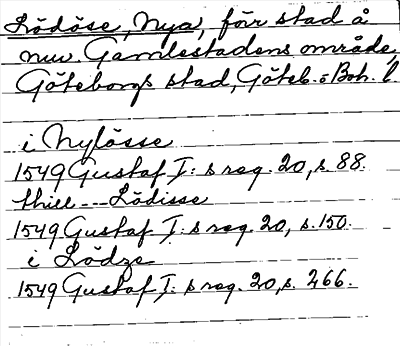 Lödöse, Nya, förr stad å
nuv. Gamlestadens område,
Göteborgs stad, Göteb. o Boh. l.
i Nylösse
1549 Gustaf I:s reg. 20, s. 88.
thill --- Lödisse
1549 Gustaf I:s reg. 20, s. 150.
i Lödze
1549 Gustaf I:s reg. 20, s. 266.